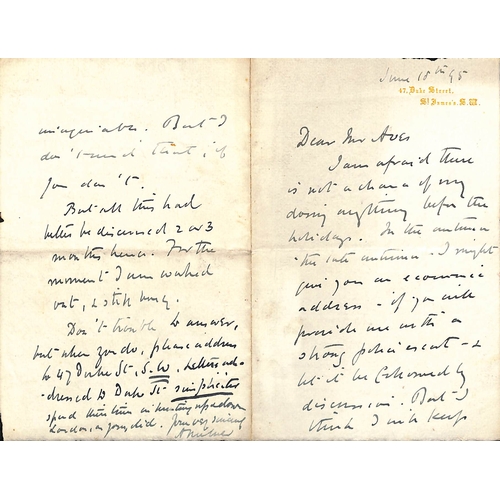 June 18th 95
47, Duke Street,
St James's. S.W.
Dear Mr Aves
I am afraid there
is not a chance of my
doing anything before the
holidays. In the autumn
- the late autumn - I might
give you an economic
address - if you will
provide me with a
strong police escort - &
let it be followed by
discussion. But I
think I will keep
But I
don't mind that, if
you don't.
But all this had
better be discussed 2 or 3
months hence. For the
moment I am worked
out, & still busy.
Don't trouble to answer,
but when you do, please address
to 47 Duke St. S.W. Letters ad-
dressed to Duke St
spend their time in up & down
London, as yours did. Yours very sincerely